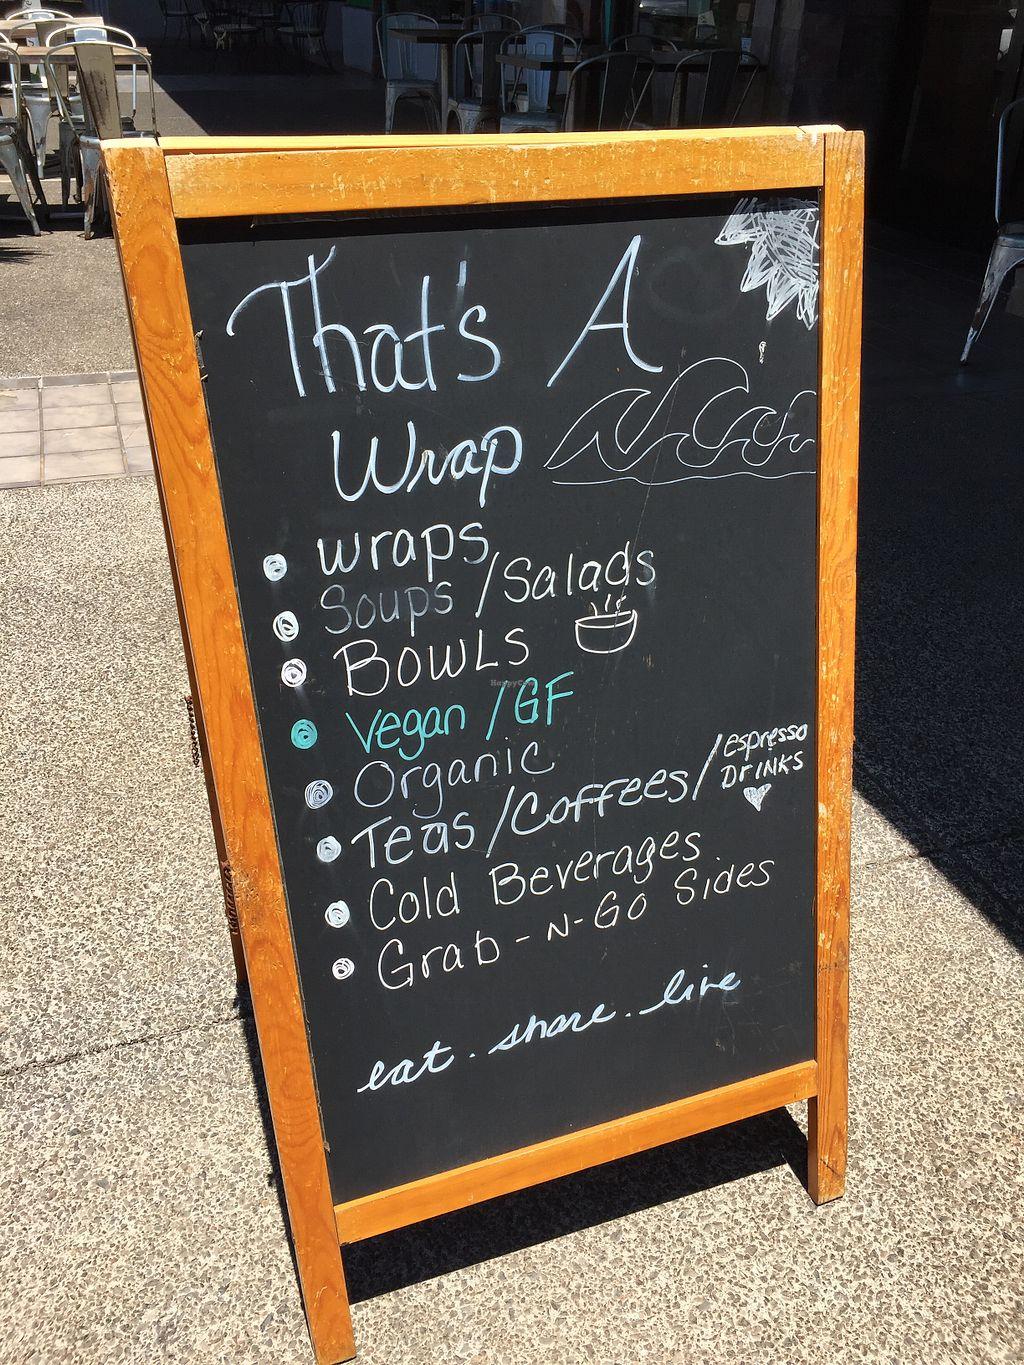 That's A
Wrap
wraps
Soups / Salads
BOWLS
Vegan / GF
Organic
Teas / Coffees / Espresso
DrINKS
Cold Beverages
Grab - N - GO Sides
eat . share . live
HappyCow